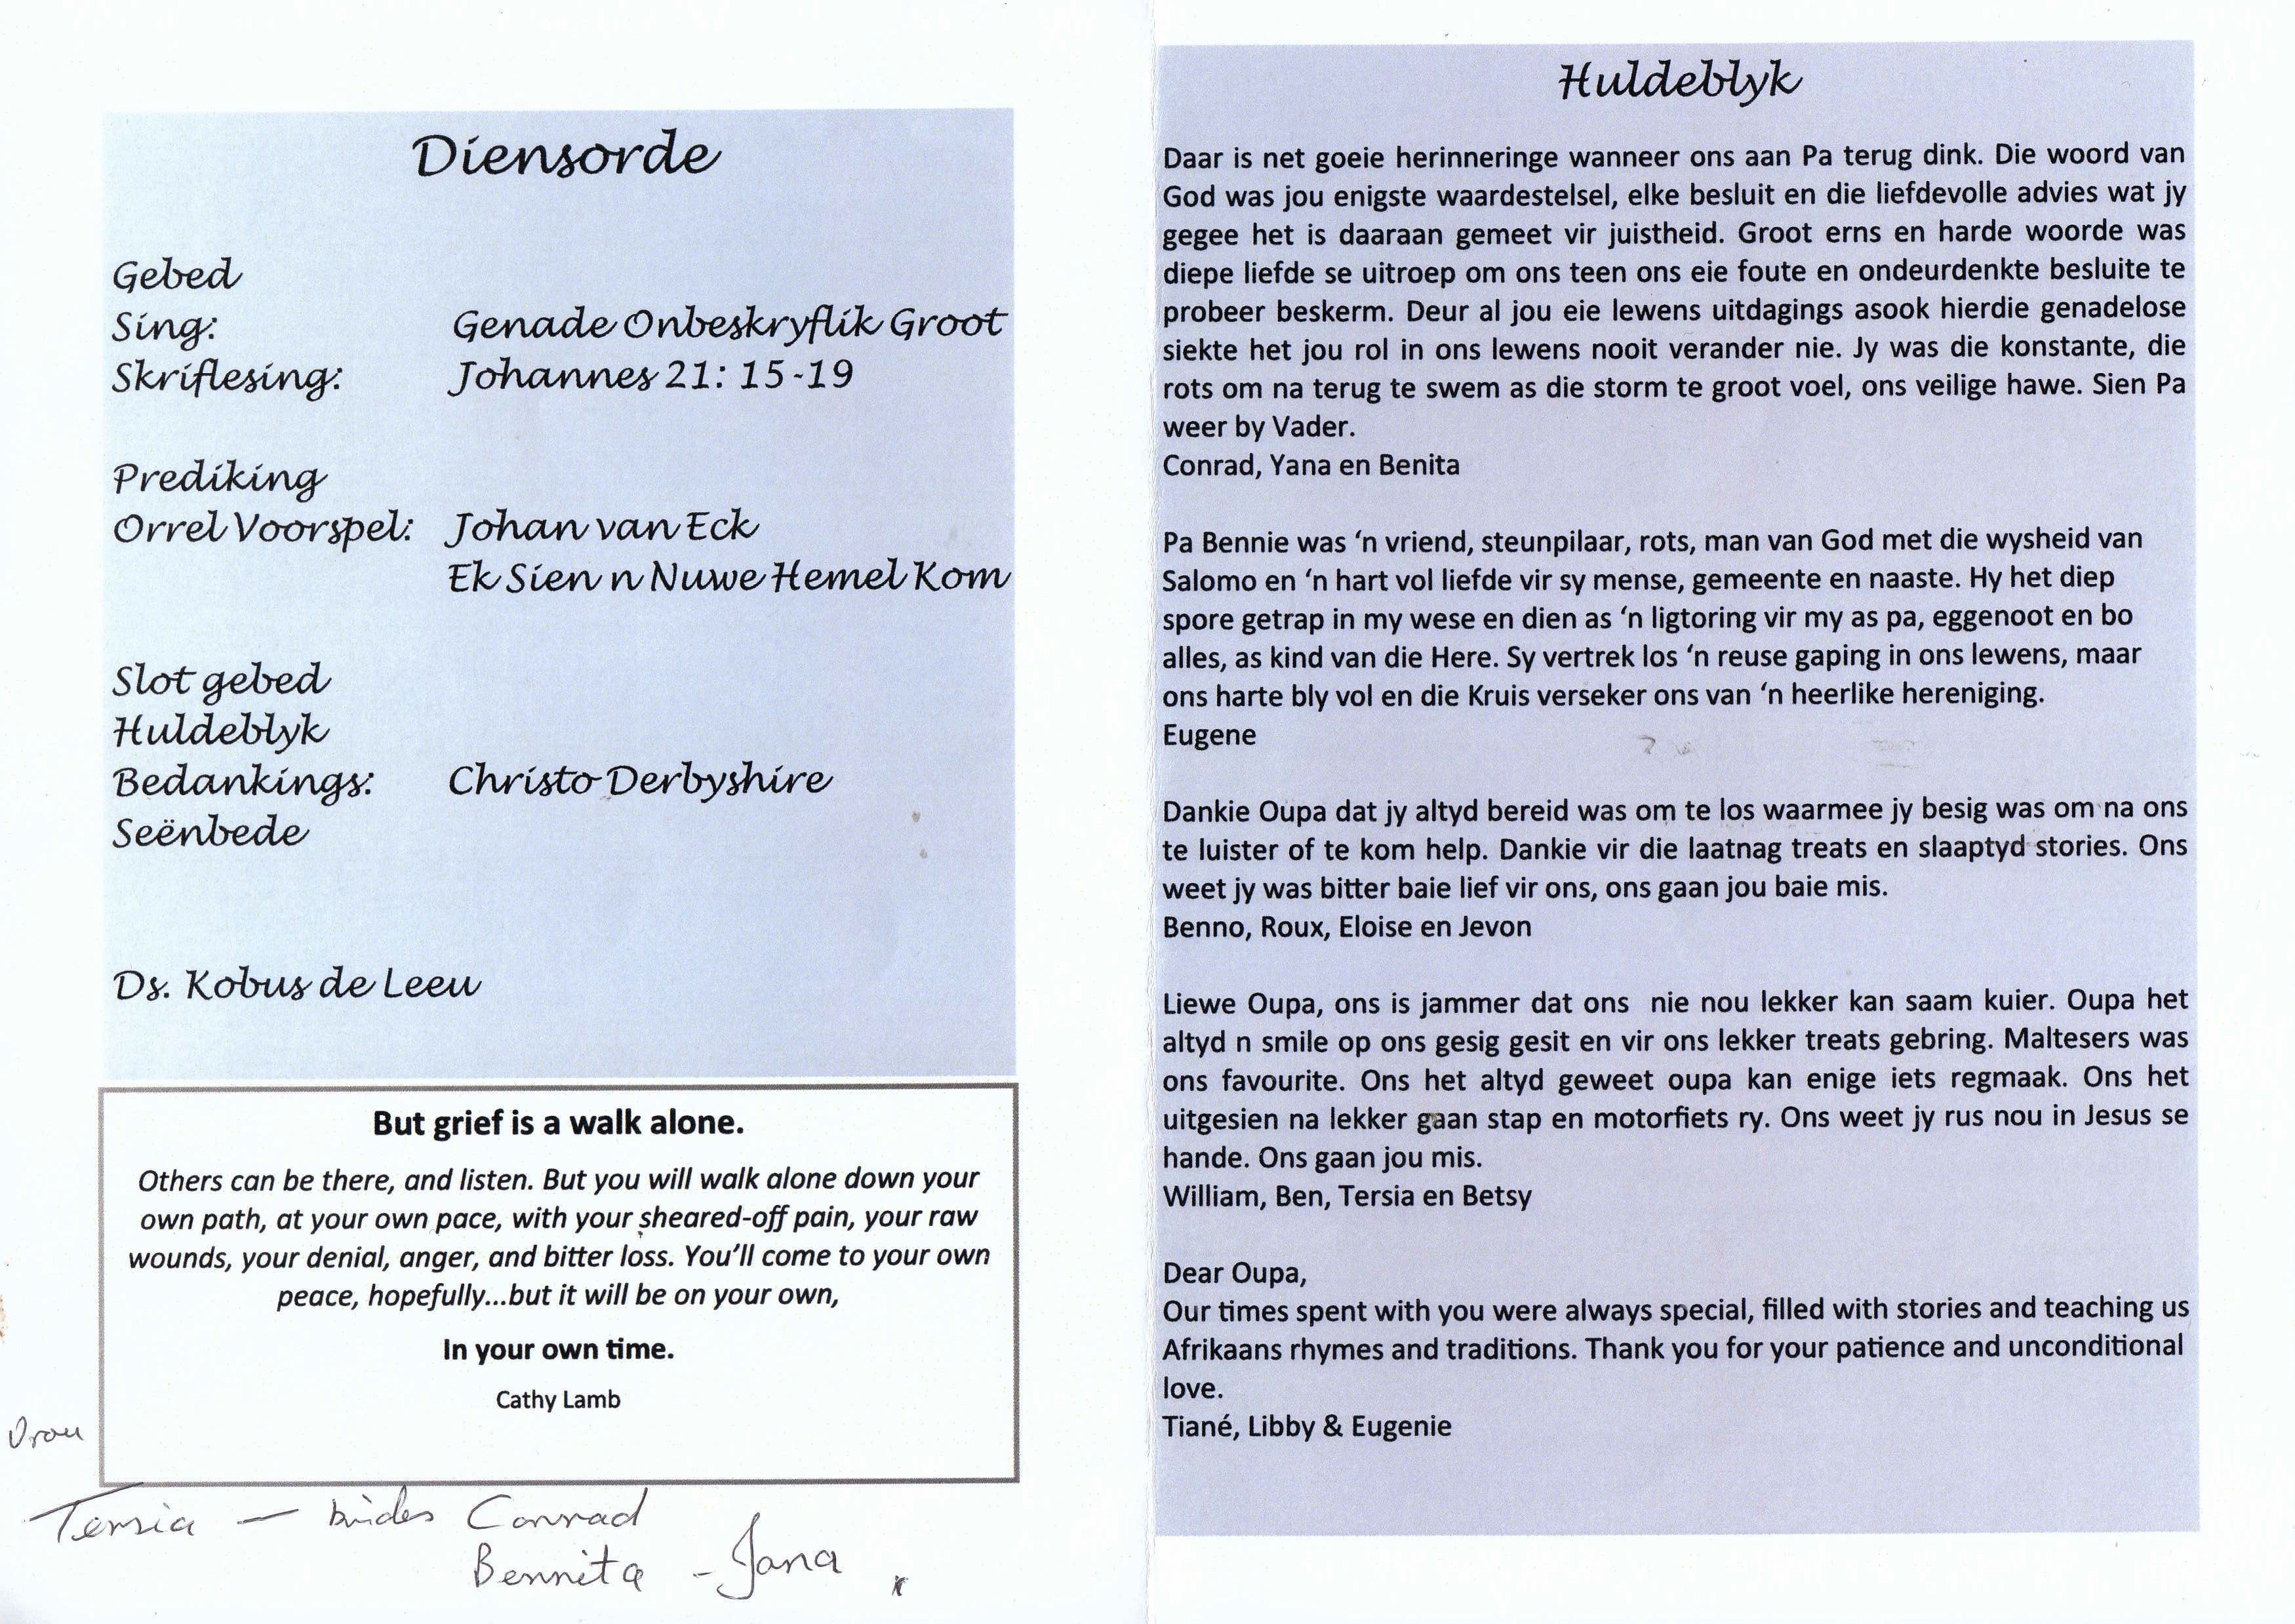 Diensorde
Gebed
Sing: Genade Onbeskryflik Groot
Skriflesing: Johannes 21: 15-19
Prediking
Orrel Voorspel: Johan van Eck
Ek Sien n Nuwe Hemel Kom
Slot gebed
Huldeblyk
Bedankings: Christo Derbyshire
Seënbede
Ds. Kobus de Leeu
But grief is a walk alone.
Others can be there, and listen. But you will walk alone down your
own path, at your own pace, with your sheared-off pain, your raw
wounds, your denial, anger, and bitter loss. You'll come to your own
peace, hopefully...but it will be on your own,
In your own time.
Cathy Lamb
Vrou
Tersia — Conrad
Bennita - Jana
Huldeblyk
Daar is net goeie herinneringe wanneer ons aan Pa terug dink. Die woord van
God was jou enigste waardestelsel, elke besluit en die liefdevolle advies wat jy
gegee het is daaraan gemeet vir juistheid. Groot erns en harde woorde was
diepe liefde se uitroep om ons teen ons eie foute en ondeurdenkte besluite te
probeer beskerm. Deur al jou eie lewens uitdagings asook hierdie genadelose
siekte het jou rol in ons lewens nooit verander nie. Jy was die konstante, die
rots om na terug te swem as die storm te groot voel, ons veilige hawe. Sien Pa
weer by Vader.
Conrad, Yana en Benita
Pa Bennie was ‘n vriend, steunpilaar, rots, man van God met die wysheid van
Salomo en ‘n hart vol liefde vir sy mense, gemeente en naaste. Hy het diep
spore getrap in my wese en dien as ‘n ligtoring vir my as pa, eggenoot en bo
alles, as kind van die Here. Sy vertrek los ‘n reuse gaping in ons lewens, maar
ons harte bly vol en die Kruis verseker ons van ‘n heerlike hereniging.
Eugene
Dankie Oupa dat jy altyd bereid was om te los waarmee jy besig was om na ons
te luister of te kom help. Dankie vir die laatnag treats en slaaptyd stories. Ons
weet jy was bitter baie lief vir ons, ons gaan jou baie mis.
Benno, Roux, Eloise en Jevon
Liewe Oupa, ons is jammer dat ons nie nou lekker kan saam kuier. Oupa het
altyd n smile op ons gesig gesit en vir ons lekker treats gebring. Maltesers was
ons favourite. Ons het altyd geweet oupa kan enige iets regmaak. Ons het
uitgesien na lekker gaan stap en motorfiets ry. Ons weet jy rus nou in Jesus se
hande. Ons gaan jou mis.
William, Ben, Tersia en Betsy
Dear Oupa,
Our times spent with you were always special, filled with stories and teaching us
Afrikaans rhymes and traditions. Thank you for your patience and unconditional
love.
Tiané, Libby & Eugenie